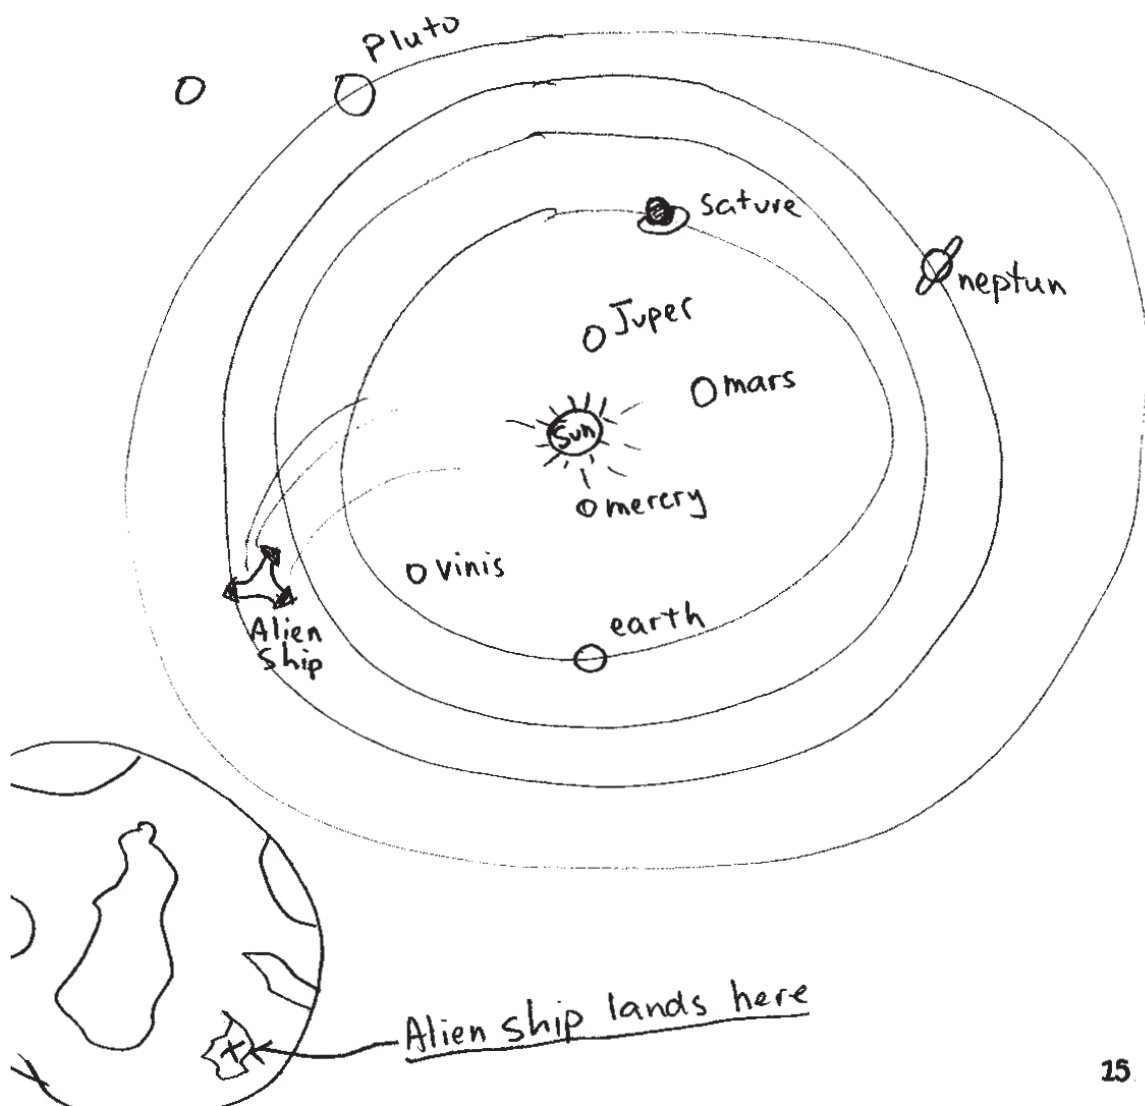 Pluto
Sature
neptun
Juper
mars
Sun
mercry
vinis
earth
Alien
Ship
Alien ship lands here
15